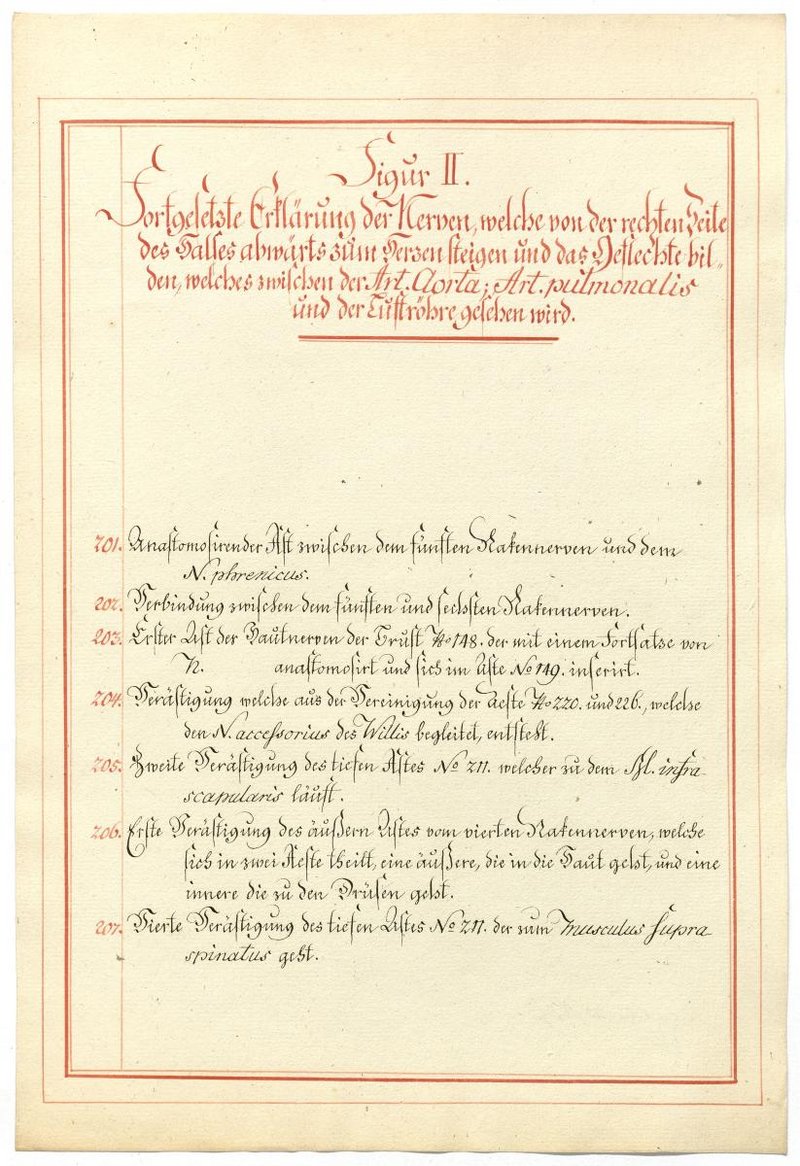 Figur II.
Fortgesetzte Erklärung der Nerven, welche von der rechten Seite
des Halses abwärts zum Herzen steigen und das Geflechte bil„
den, welches zwischen der Art. Aorta; Art. pulmonalis
und der Luftröhre gesehen wird.
201. Anastomosirender Ast zwischen dem fünften Nakennerven und dem
N. phrenicus.
202. Verbindung zwischen dem fünften und sechsten Nakennerven.
203. Erster Ast der Hautnerven der Brust No 148. der mit einem Fortsatze von
N. anastomosirt und sich im Aste No 149. inserirt.
204. Verästigung welche aus der Vereinigung der Aeste No 220. und 226., welche
den N. accessorius des Willis begleitet, entsteht.
205. Zweite Verästigung des tiefen Astes No 211. welcher zu dem M. infra
scapularis läuft.
206. Erste Verästigung des äußern Astes vom vierten Nakennerven, welche
sich in zwei Aeste theilt, eine äußere, die in die Haut geht, und eine
innere die zu den Drüsen geht.
207. Vierte Verästigung des tiefen Astes No 211. der zum musculus supra
spinatus geht.